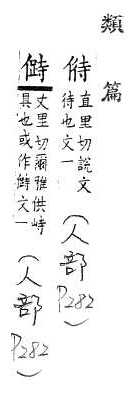 類篇
偫
直里切說文
待也文一
(人部 P282)
丈里切爾雅供峙
具也或作文一
(人部 P282)